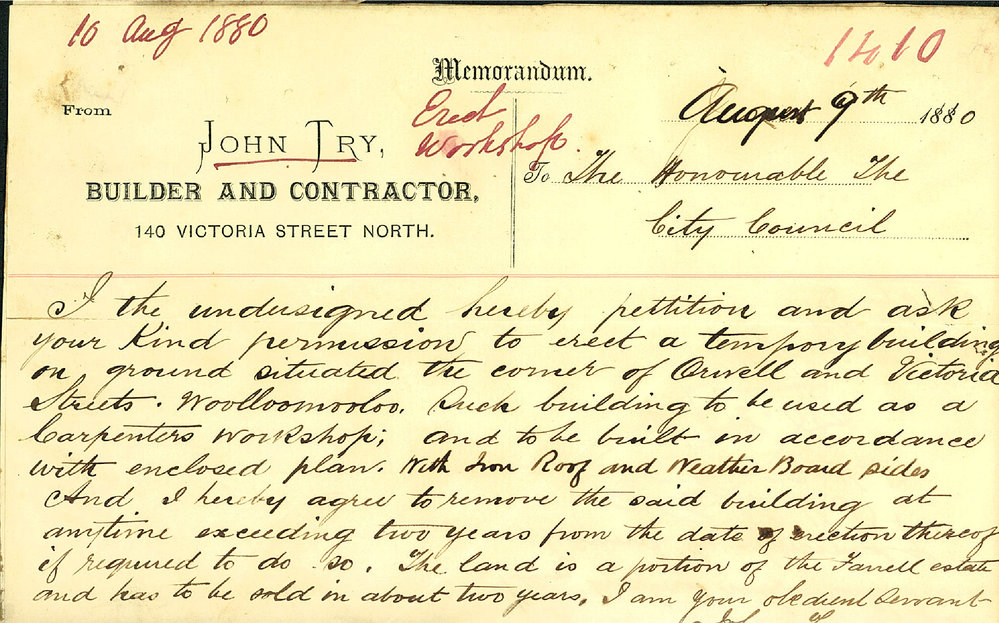 10 Aug 1880
1410
Memorandum.
From
Erect
Workshop
JOHN TRY,
BUILDER AND CONTRACTOR,
140 VICTORIA STREET NORTH.
August 9th 1880
To The Honourable The
City Council
I the undersigned hereby pettition and ask
your Kind permission to erect a tempory building
on ground situated the corner of Orwell and Victoria
Streets. Woolloomooloo. Such building to be used as a
Carpenters Workshop; and to be built in accordance
with enclosed plan. With Iron Roof and Weather Board sides
And I hereby agree to remove the said building at
anytime exceeding two years from the date of erection thereof
if required to do so. The land is a portion of the Farrell estate
and has to be sold in about two years. I am your obedient Servant